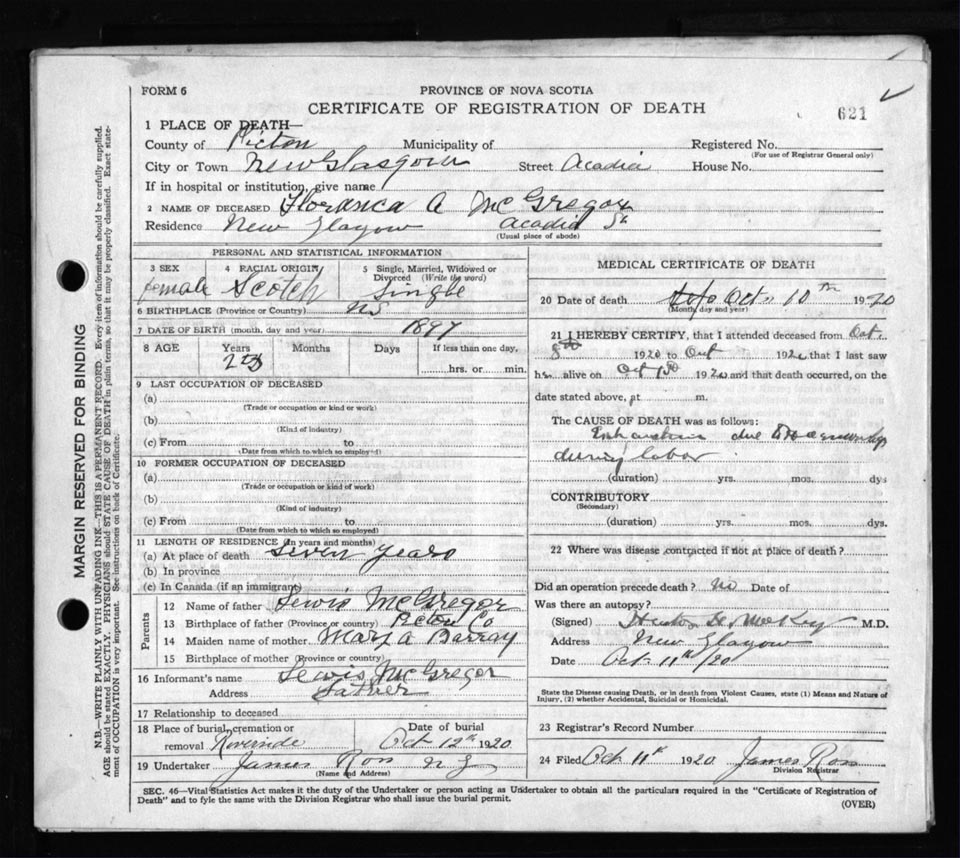 FORM 6
PROVINCE OF NOVA SCOTIA
CERTIFICATE OF REGISTRATION OF DEATH
621
1 PLACE OF DEATH—
County of Picton Municipality of Registered No.
(For use of Registrar General only)
City or Town New Glasgow Street Acadia House No.
If in hospital or institution, give name
2 NAME OF DECEASED Floranca A McGregor
Residence New Glagow Acadia St
(Usual place of abode)
PERSONAL AND STATISTICAL INFORMATION
3 SEX 4 RACIAL ORIGIN 5 Single, Married, Widowed or Divorced (Write the word)
female Scotch Single
6 BIRTHPLACE (Province or Country) NS
7 DATE OF BIRTH (month, day and year) 1897
8 AGE Years Months Days If less than one day,
23 hrs. or min.
9 LAST OCCUPATION OF DECEASED
(a)
(Trade or occupation or kind or work)
(b)
(Kind of industry)
(c) From to
(Date from which to which so employed)
10 FORMER OCCUPATION OF DECEASED
(a)
(Trade or occupation or kind of work)
(b)
(Kind of industry)
(c) From to
(Date from which to which so employed)
11 LENGTH OF RESIDENCE (In years and months)
(a) At place of death Seven years
(b) In province
(c) In Canada (if an immigrant)
Parents
12 Name of father Lewis McGregor
13 Birthplace of father (Province or country) Picton Co
14 Maiden name of mother Mary A Barray
15 Birthplace of mother (Province or country)
16 Informant's name Lewis McGregor
Address father
17 Relationship to deceased
18 Place of burial, cremation or Date of burial
removal Riverside Oct 12th 1920
19 Undertaker James Ross N G
(Name and Address)
MEDICAL CERTIFICATE OF DEATH
20 Date of death Oct 10th 1920
(Month, day and year)
21 I HEREBY CERTIFY, that I attended deceased from Oct.
8th 1920 to Oct 1920 that I last saw
h alive on Oct 1920 and that death occurred, on the
date stated above, at m.
The CAUSE OF DEATH was as follows:
Exhaustion due
during labor
(duration) yrs. mos. dys
CONTRIBUTORY
(Secondary)
(duration) yrs. mos. dys.
22 Where was disease contracted if not at place of death?
Did an operation precede death? No Date of
Was there an autopsy?
(Signed) McKay M.D.
Address New Glagow
Date Oct. 11th/20
State the Disease causing Death, or in death from Violent Causes, state (1) Means and Nature of
Injury, (2) whether Accidental, Suicidal or Homicidal.
23 Registrar's Record Number
24 Filed Oct 11 1920 James Ross
Division Registrar
SEC. 46—Vital Statistics Act makes it the duty of the Undertaker or person acting as Undertaker to obtain all the particulars required in the "Certificate of Registration of
Death" and to fyle the same with the Division Registrar who shall issue the burial permit.
(OVER)
MARGIN RESERVED FOR BINDING
N.B.—WRITE PLAINLY WITH UNFADING INK—THIS IS A PERMANENT RECORD. Every item of information should be carefully supplied.
AGE should be stated EXACTLY. PHYSICIANS should STATE CAUSE OF DEATH in plain terms, so that it may be properly classified. Exact state-
ment of OCCUPATION is very important. See instructions on back of Certificate.